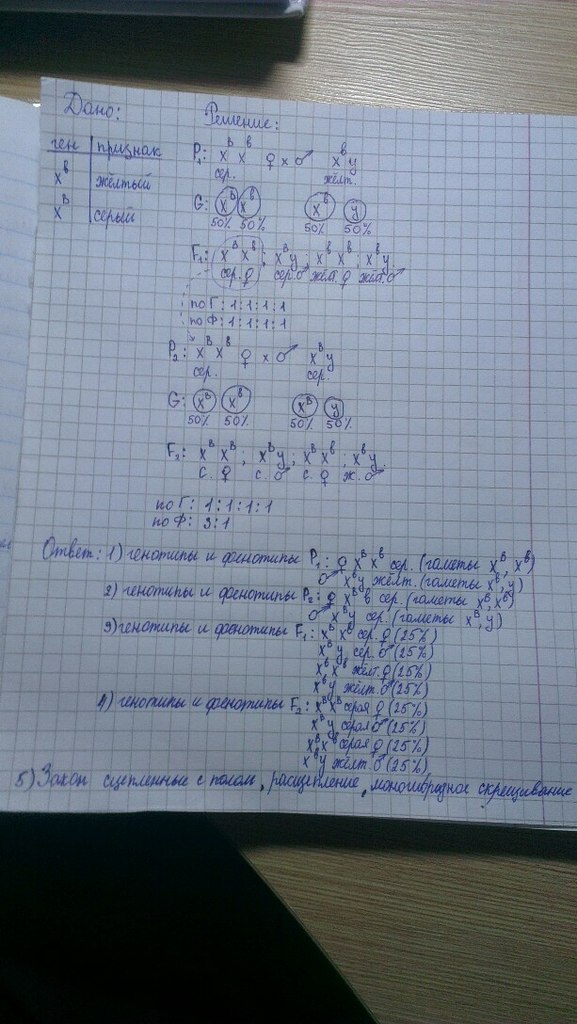 Дано: Решение:
ген | признак
X^b | жёлтый
X^B | серый
P₁: X^B X^b ♀ x ♂ X^b y
сер. жёлт.
G: X^B X^b X^b y
50% 50% 50% 50%
F₁: X^B X^b; X^B y; X^b X^b; X^b y.
сер. ♀ сер. ♂ жёл. ♀ жёл. ♂
по Г: 1:1:1:1
по Ф: 1:1:1:1
P₂: X^B X^b ♀ x ♂ X^B y
сер. сер.
G: X^B X^b X^B y
50% 50% 50% 50%
F₂: X^B X^B; X^B y; X^B X^b; X^b y.
с. ♀ с. ♂ с. ♀ ж. ♂
по Г: 1:1:1:1
по Ф: 3:1
Ответ: 1) генотипы и фенотипы P₁: ♀ X^B X^b сер. (гаметы X^B, X^b)
♂ X^b y жёлт. (гаметы X^b, y)
2) генотипы и фенотипы P₂: ♀ X^B b сер. (гаметы X^B, X^b)
♂ X^B y сер. (гаметы X^B, y)
3) генотипы и фенотипы F₁: X^B X^b сер. ♀ (25%)
X^B y сер. ♂ (25%)
X^b X^b жёлт. ♀ (25%)
X^b y жёлт. ♂ (25%)
4) генотипы и фенотипы F₂: X^B X^B серая ♀ (25%)
X^B y серая ♂ (25%)
X^B X^b серая ♀ (25%)
X^b y жёлт. ♂ (25%)
5) Закон сцепленные с полом, расщепление, моногибридное скрещивание